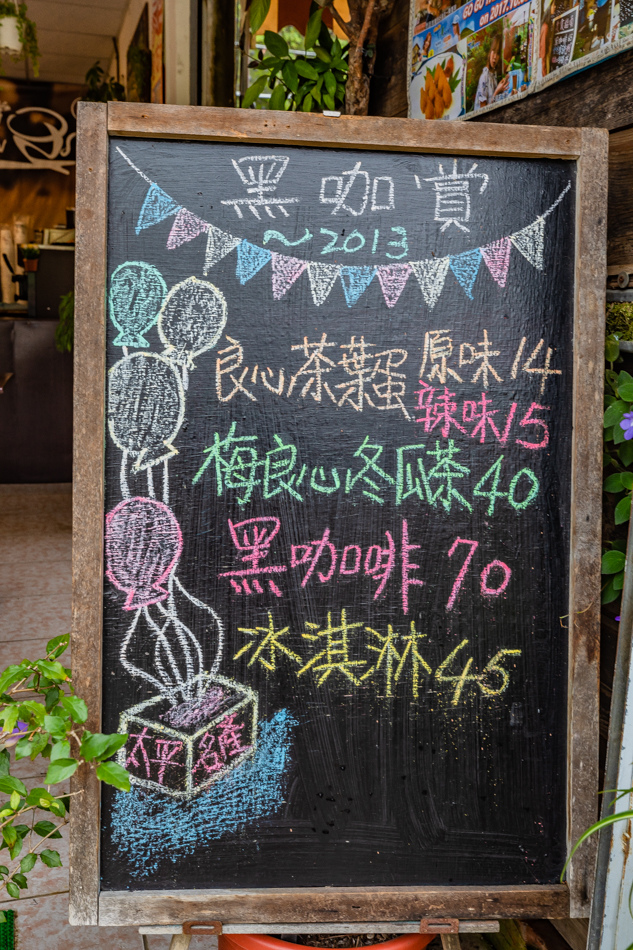 GO GO
on 2017.10
黑咖賞
~2013
良心茶葉蛋 原味14
辣味15
梅良心冬瓜茶40
黑咖啡 70
冰淇淋45
太平 名產